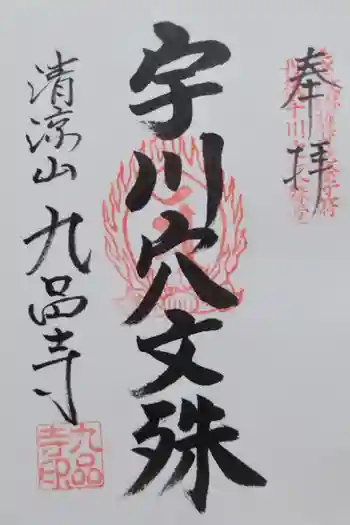 奉拝
宇川穴文殊
清涼山 九品寺
九品寺印